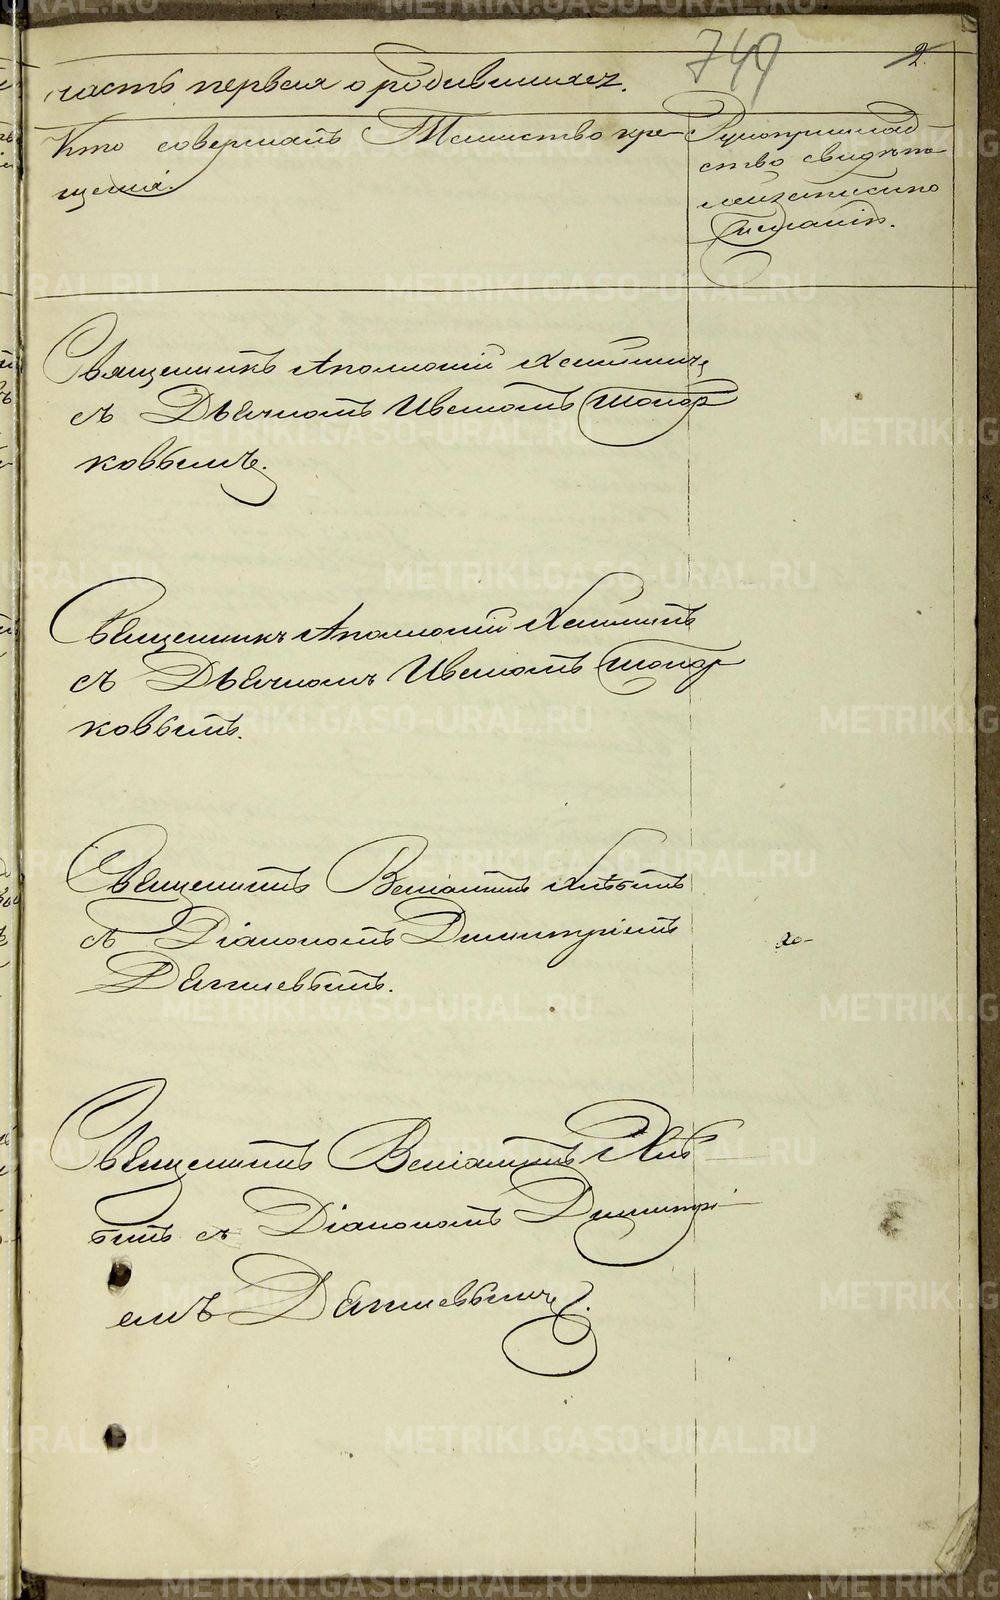 749
2.
часть первая о родившихся.
Кто совершалъ Таинство кре-
щенія.
Рукоприклад-
ство свидѣте-
лей записи по
желанію.
Священникъ Аполлоній
съ Дьячкомъ Ивомомъ Топор
ковымъ.
Священникъ Аполлоній
съ Дьячкомъ Топор
ковымъ.
Священникъ Веніаминъ Хлѣбинъ
съ Діакономъ Димитріемъ
Дягилевымъ.
Священникъ Веніаминъ Хлѣ
бинъ съ Діакономъ Димитрі-
емъ Дягилевымъ.
METRIKI.GASO-URAL.RU